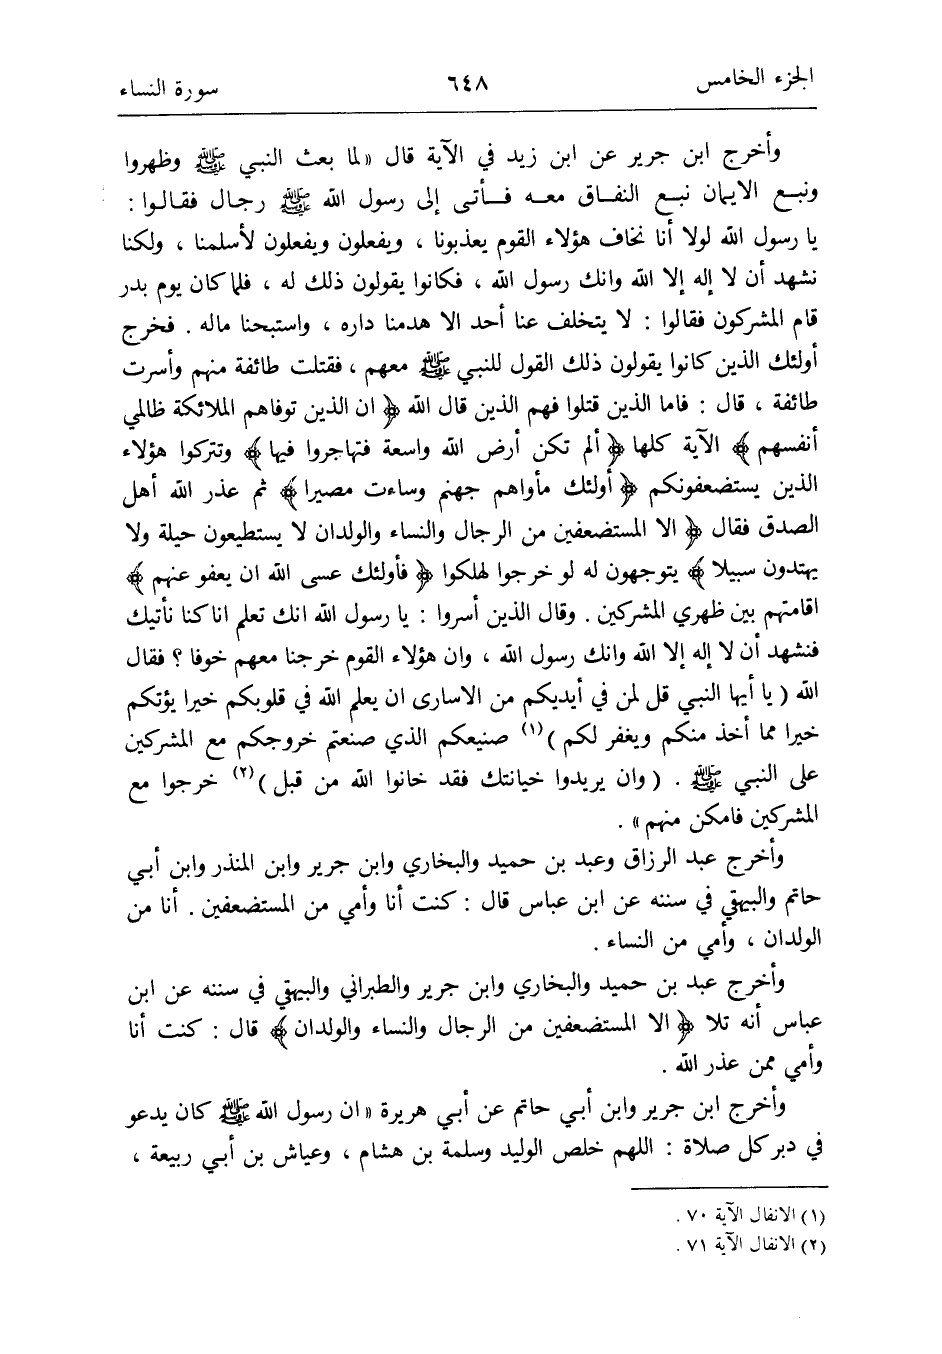 الجزء الخامس ٦٤٨ سورة النساء
وأخرج ابن جرير عن ابن زيد في الآية قال «لما بعث النبي ﷺ وظهروا
ونبع الايمان نبع النفاق معه فأتى إلى رسول الله ﷺ رجال فقالوا :
يا رسول الله لولا أنا نخاف هؤلاء القوم يعذبونا ، ويفعلون ويفعلون لأسلمنا ، ولكنا
نشهد أن لا إله إلا الله وانك رسول الله ، فكانوا يقولون ذلك له ، فلما كان يوم بدر
قام المشركون فقالوا : لا يتخلف عنا أحد الا هدمنا داره ، واستبحنا ماله . فخرج
أولئك الذين كانوا يقولون ذلك القول للنبي ﷺ معهم ، فقتلت طائفة منهم وأسرت
طائفة ، قال : فاما الذين قتلوا فهم الذين قال الله ﴿ ان الذين توفاهم الملائكة ظالمي
أنفسهم ﴾ الآية كلها ﴿ ألم تكن أرض الله واسعة فتهاجروا فيها ﴾ وتتركوا هؤلاء
الذين يستضعفونكم ﴿ أولئك مأواهم جهنم وساءت مصيرا ﴾ ثم عذر الله أهل
الصدق فقال ﴿ الا المستضعفين من الرجال والنساء والولدان لا يستطيعون حيلة ولا
يهتدون سبيلا ﴾ يتوجهون له لو خرجوا لهلكوا ﴿ فأولئك عسى الله ان يعفو عنهم ﴾
اقامتهم بين ظهري المشركين . وقال الذين أسروا : يا رسول الله انك تعلم انا كنا نأتيك
فنشهد أن لا إله إلا الله وانك رسول الله ، وان هؤلاء القوم خرجنا معهم خوفا ؟ فقال
الله ( يا أيها النبي قل لمن في أيديكم من الاسارى ان يعلم الله في قلوبكم خيرا يؤتكم
خيرا مما أخذ منكم ويغفر لكم )(١) صنيعكم الذي صنعتم خروجكم مع المشركين
على النبي ﷺ . ( وان يريدوا خيانتك فقد خانوا الله من قبل )(٢) خرجوا مع
المشركين فامكن منهم» .
وأخرج عبد الرزاق وعبد بن حميد والبخاري وابن جرير وابن المنذر وابن أبي
حاتم والبيهقي في سننه عن ابن عباس قال : كنت أنا وأمي من المستضعفين . أنا من
الولدان ، وأمي من النساء .
وأخرج عبد بن حميد والبخاري وابن جرير والطبراني والبيهقي في سننه عن ابن
عباس أنه تلا ﴿ الا المستضعفين من الرجال والنساء والولدان ﴾ قال : كنت أنا
وأمي ممن عذر الله .
وأخرج ابن جرير وابن أبي حاتم عن أبي هريرة «ان رسول الله ﷺ كان يدعو
في دبر كل صلاة : اللهم خلص الوليد وسلمة بن هشام ، وعياش بن أبي ربيعة ،
(١) الانفال الآية ٧٠ .
(٢) الانفال الآية ٧١ .